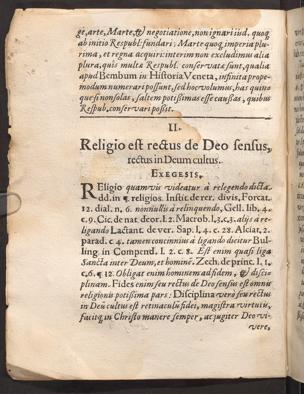 ge, arte, Marte, & negotiatione, non ignari sud. quog
ab initio Respubl. fundari: Marte quoq imperia plu-
rima, et regna acquiri: interim non excludimus alia
plura, quîs multæ Respubl. conservatæ sunt, qualia
apud Bembum in Historia Veneta, infinita prope-
modum numerari possunt, sed hoc volumus, has quin-
que si non solas, saltem potissimas esse caussas, quibus
Respub. conservari possit.
II.
Religio est rectus de Deo sensus,
rectus in Deum cultus.
EXEGESIS.
REligio quamvis videatur à relegendo dicta
d.d. in ¶. religios. Instit. de rer. divis, Forcat.
12. dial. n, 6. nonnulli à relinquendo, Gell. lib, 4.
c. 9. Cic. de nat. deor. l. 2. Macrob. l. 3. c. 3. alij à re-
ligando Lactant. de ver. Sap. l, 4. c. 28. Alciat. 2.
parad. c 4. tamen concinniùs à ligando dicitur Bul-
ling. in Compend. l. 2. c. 8. Est enim quasi liga
Sancta inter Deum, et hominē. Zech. de princ. l. 1,
c, 6. ¶ 12. Obligat enim hominem ad fidem, & disci-
plinam. Fides enim seu rectus de Deo sensus est omnis
religionis potissima pars: Disciplina verò seu rectus
in Deū cultus est retinaculū fidei, magistra virtutis,
facitq, in Christo manere semper, ac jugiter Deo vi-
vere,